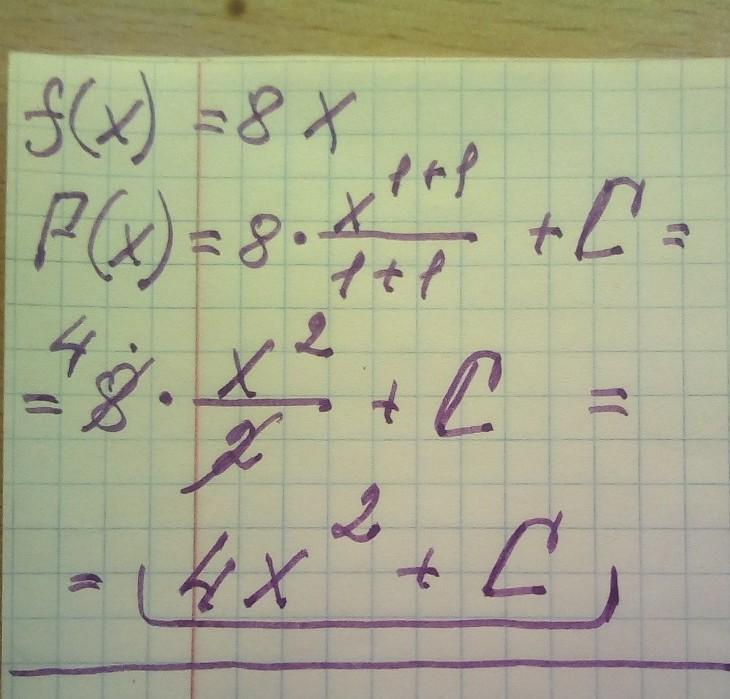 f(x) = 8x
F(x) = 8 · x^(1+1)/(1+1) + C =
= 4 8 · x²/2 + C =
= 4x² + C